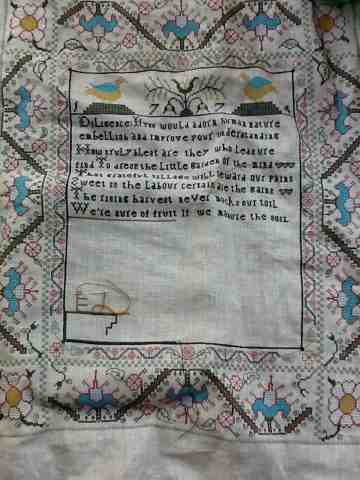 Diligence: If you would adorn human nature
embellish and improve your understanding
How truly blest are they who leasure
find To dress the Little Garden of the mind
That grateful village will reward our pains
Sweet is the Labour certain are the gains
The rising harvest never mocks our toil
We're sure of fruit if we manure the soil